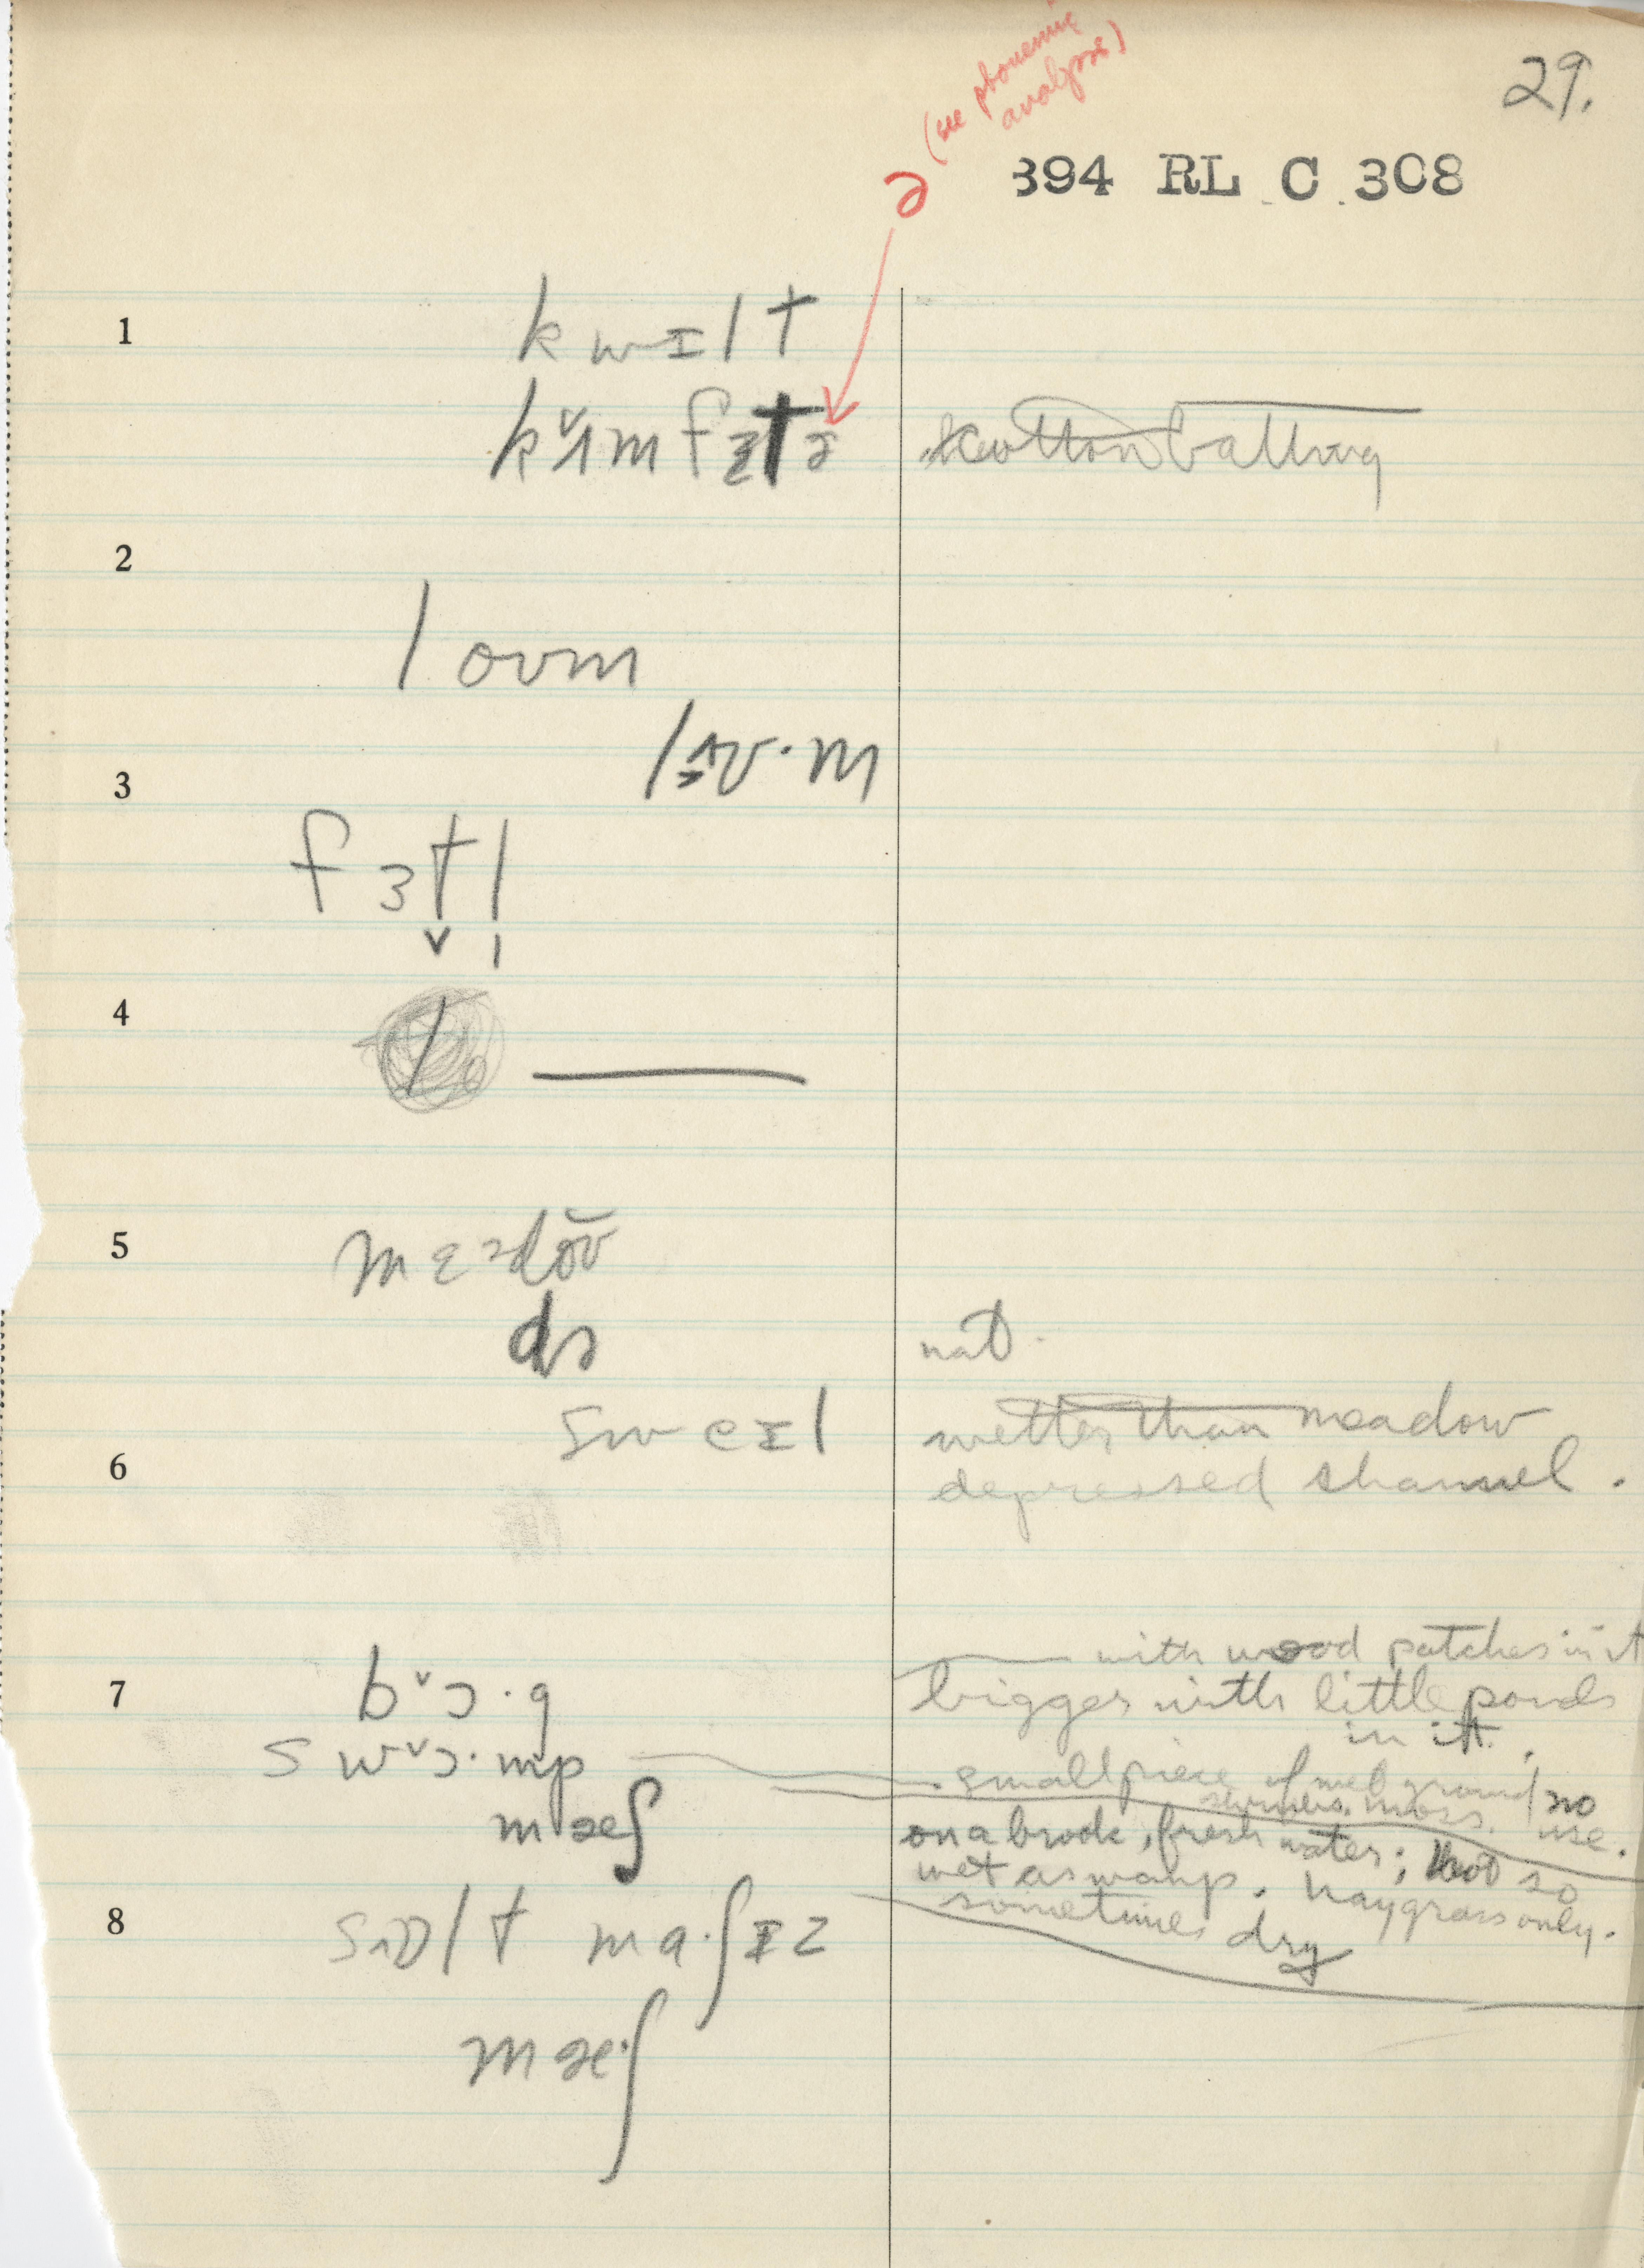 (see phonemic
analysis)
29.
ə
394 RL C 308
1
kwɪlt
k˅ʌmfɜtə cotton batting
2
loʊm
3
fɜtl
4
5
mɛdoʊ
də nat.
sweɪl wetter than meadow
6 depressed channel.
with wood patches in it
7 b˅ɔ·g bigger with little ponds
in it.
sw˅ɔ·mp small piece of wet ground no
moss. use.
mæʃ on a brook, fresh water; not so
wet as swamp. hay grass only.
8 sɒlt ma·ʃɪz sometimes dry
mæ·ʃ